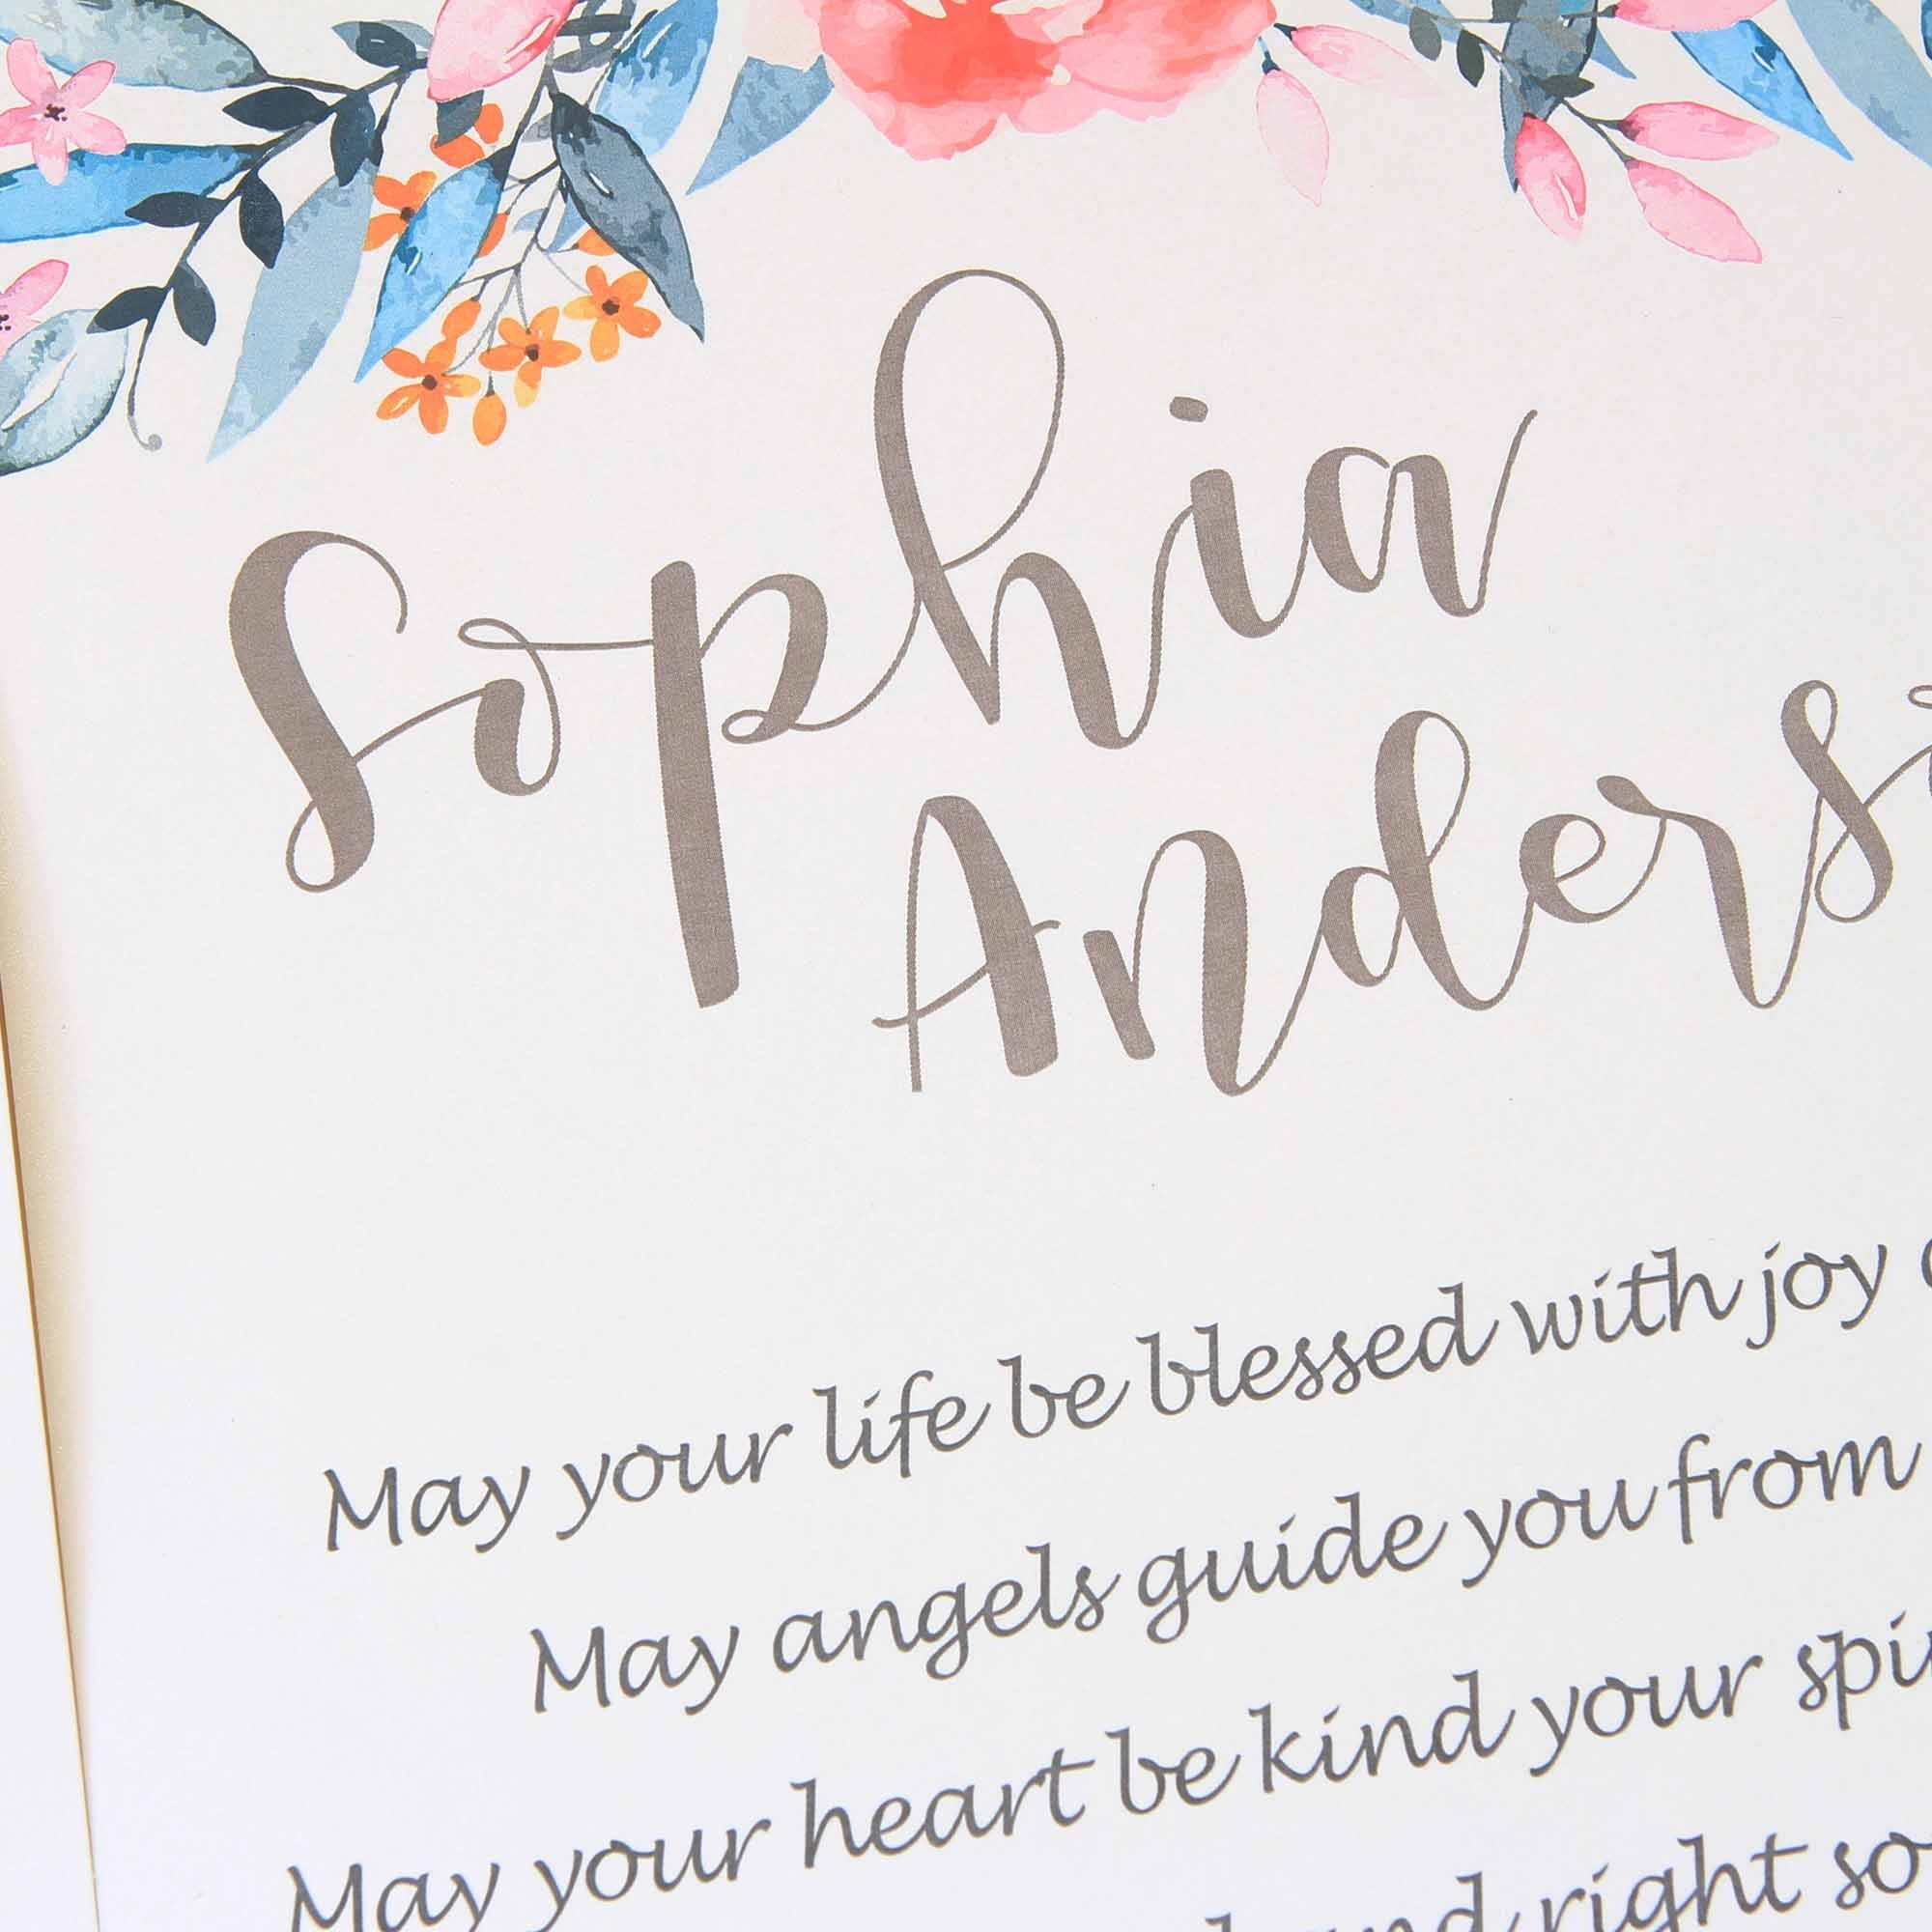 Sophia
Anders
May your life be blessed with joy
May angels guide you from
May your heart be kind your
right so